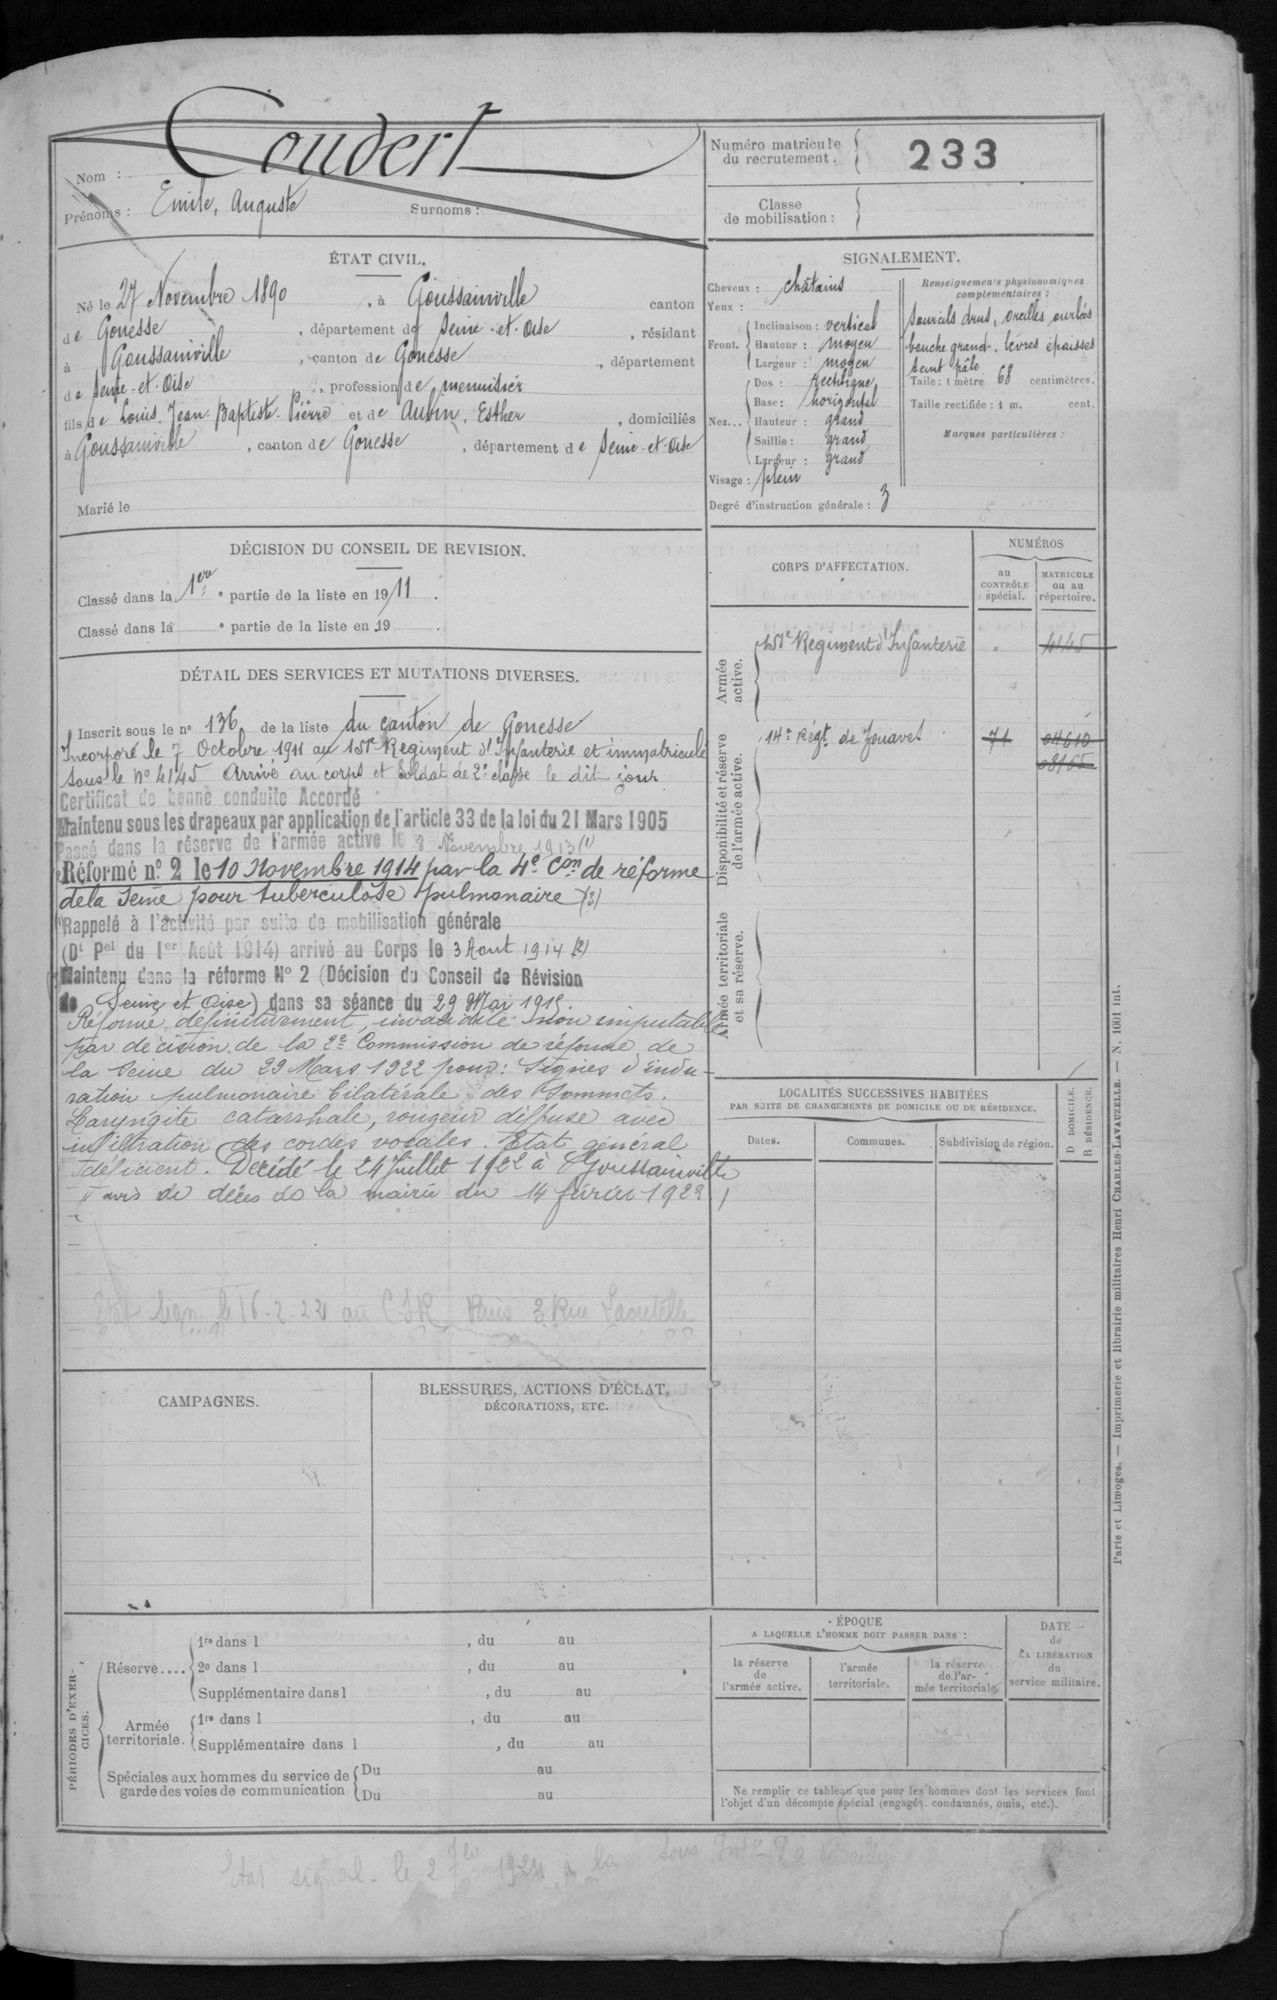 Coudert
Nom :
Prénoms : Emile, Auguste Surnoms :
Numéro matricule du recrutement. 233
Classe de mobilisation :
ÉTAT CIVIL.
Né le 27 Novembre 1890, à Goussainville canton
de Gonesse, département de Seine-et-Oise, résidant
à Goussainville, canton de Gonesse, département
de Seine-et-Oise, profession de menuisier
fils de Louis, Jean Baptiste Pierre et de Aubin, Esther, domiciliés
à Goussainville, canton de Gonesse, département de Seine-et-Oise
Marié le
SIGNALEMENT.
Cheveux : châtains
Yeux :
Front. Inclinaison : vertical
Hauteur : moyen
Largeur : moyen
Nez... Dos : rectiligne
Base : horizontal
Hauteur : grand
Saillie : grand
Largeur : grand
Visage : plein
Degré d'instruction générale : 3
Renseignements physionomiques complémentaires :
Sourcils drus, oreilles ourlées
bouche grande, lèvres épaisses
teint pâle
Taille : 1 mètre 68 centimètres.
Taille rectifiée : 1 m. cent.
Marques particulières :
DÉCISION DU CONSEIL DE REVISION.
Classé dans la 1ère partie de la liste en 1911.
Classé dans la e partie de la liste en 19 .
DÉTAIL DES SERVICES ET MUTATIONS DIVERSES.
Inscrit sous le no 136 de la liste du canton de Gonesse
Incorporé le 7 Octobre 1911 au 151e Regiment d'Infanterie et immatriculé
sous le No 4145 Arrivé au corps et Soldat de 2e classe le dit jour
Certificat de bonne conduite Accordé
Maintenu sous les drapeaux par application de l'article 33 de la loi du 21 Mars 1905
Passé dans la réserve de l'armée active le 8 Novembre 1913 (1)
Réformé no. 2 le 10 Novembre 1914 par la 4e Con de réforme
de la Seine pour tuberculose pulmonaire (3)
Rappelé à l'activité par suite de mobilisation générale
(Dt Pel du 1er Août 1914) arrivé au Corps le 3 Aout 1914 (2)
Maintenu dans la réforme No 2 (Décision du Conseil de Révision
de Seine et Oise) dans sa séance du 29 Mai 1915.
Réformé définitivement, invalidité non imputable
par décision de la 2e Commission de réforme de
la Seine du 29 Mars 1922 pour : Signes d'indu-
ration pulmonaire bilatérale des Sommets.
Laryngite catarrhale, rougeur diffuse avec
infiltration des cordes vocales. Etat général
déficient. Décédé le 24 Juillet 1922 à Goussainville
avis de décès de la mairie du 14 février 1923
Etat sign. le 16-2-22 au CSR Paris 3 Rue Lacretelle
CORPS D'AFFECTATION.
NUMÉROS
au CONTRÔLE spécial.
MATRICULE ou au répertoire.
Armée active.
151e Regiment d'Infanterie 4145
Disponibilité et réserve de l'armée active.
14e Régt de Zouaves 71 04610
08165
Armée territoriale et sa réserve.
LOCALITÉS SUCCESSIVES HABITÉES
PAR SUITE DE CHANGEMENTS DE DOMICILE OU DE RÉSIDENCE.
Dates. Communes. Subdivision de région. D DOMICILE. R RÉSIDENCE.
CAMPAGNES.
BLESSURES, ACTIONS D'ÉCLAT,
DÉCORATIONS, ETC.
PÉRIODES D'EXERCICES.
Réserve.... 1re dans l , du au
2e dans l , du au
Supplémentaire dans l , du au
Armée territoriale. 1re dans l , du au
Supplémentaire dans l , du au
Spéciales aux hommes du service de garde des voies de communication Du au
Du au
ÉPOQUE
A LAQUELLE L'HOMME DOIT PASSER DANS :
la réserve de l'armée active.
l'armée territoriale.
la réserve de l'armée territoriale.
DATE de LA LIBÉRATION du service militaire.
Ne remplir ce tableau que pour les hommes dont les services font
l'objet d'un décompte spécial (engagés, condamnés, omis, etc.).
Paris et Limoges. — Imprimerie et librairie militaires Henri CHARLES-LAVAUZELLE. — N. 1001 int.
Etat signal. le 2 1924 à la Sous